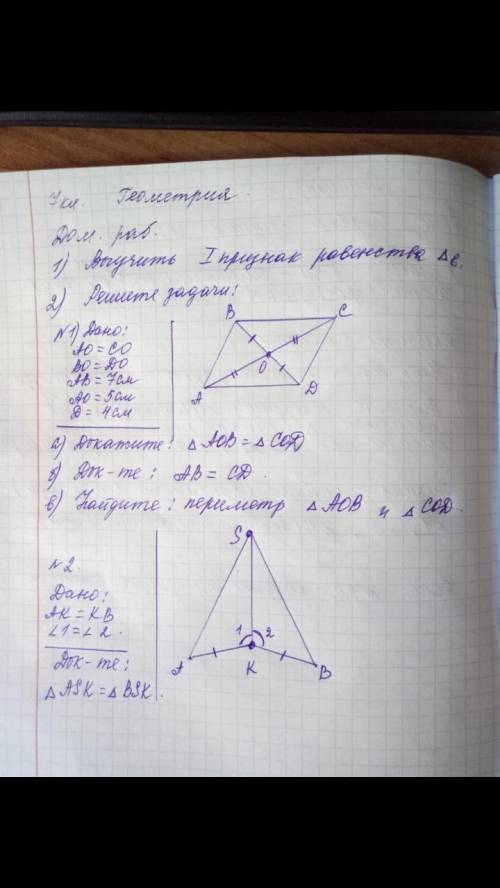 7 кл. Геометрия.
Дом. раб.
1) Выучить I признак равенства Δв.
2) Решите задачи:
№1) Дано:
AO = CO
BO = DO
AB = 7 см
AO = 5 см
D = 4 см
B C
O
A D
а) Докажите: Δ AOB = Δ COD
б) Док-те: AB = CD.
в) Найдите: периметр Δ AOB и Δ COD.
№2.
Дано:
AK = KB
∠1 = ∠2.
Док-те:
Δ ASK = Δ BSK.
S
1 2
A K B